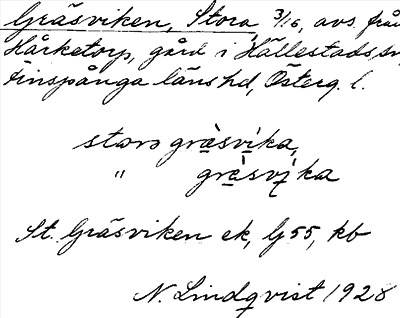 Gräsviken, Stora, 3/16, avs. från
Hårketorp, gård i Hällestads sn
Finspånga läns hd, Österg. l.
stora gräsvika,
" gräsvika
St. Gräsviken ek, Lj 55, kb
N. Lindqvist 1928